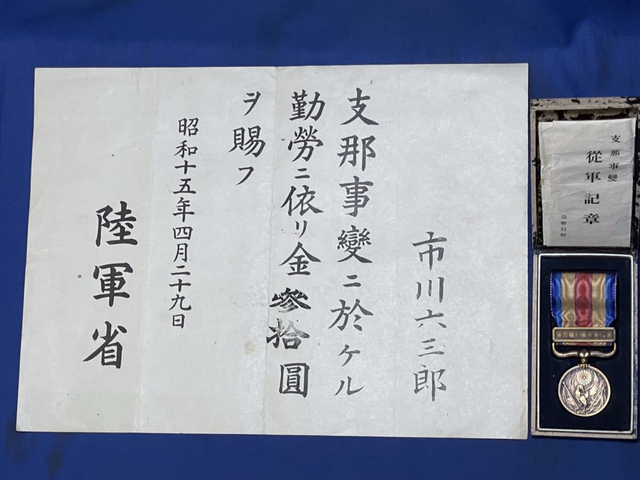 市川六三郎
支那事變ニ於ケル
勤勞ニ依リ金參拾圓
ヲ賜フ
昭和十五年四月二十九日
陸軍省
支那事變
從軍記章